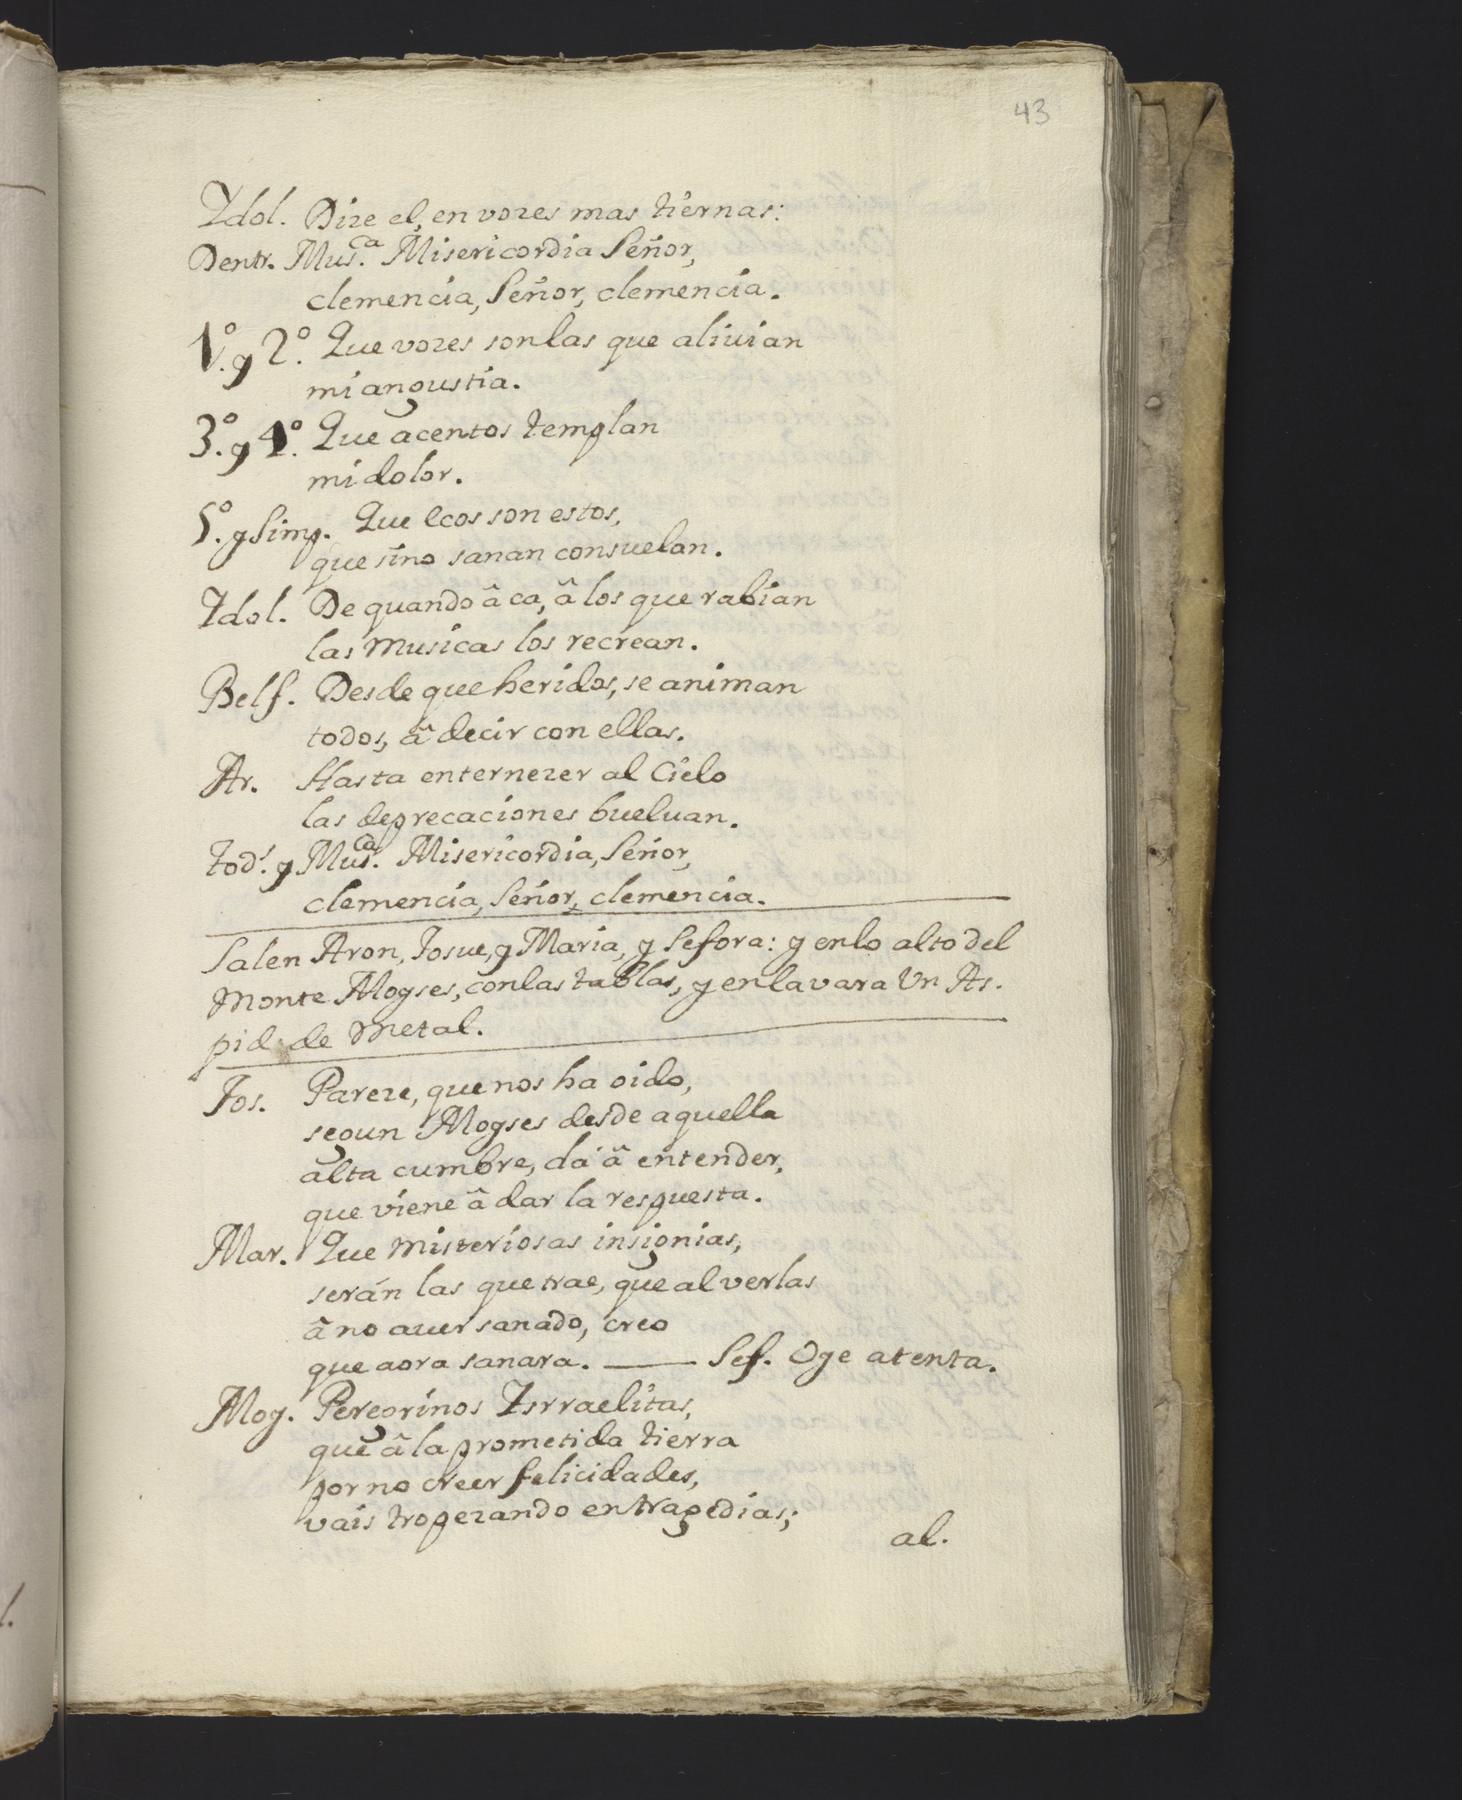 43
Ydol. Dize el, en vozes mas tiernas:
Dentr. Mus.ca Misericordia Señor,
clemencia, Señor, clemencia.
1.º y 2.º Que vozes son las que aliuian
mi angustia.
3.º y 4.º Que acentos templan
mi dolor.
5.º y Simp. Que ecos son estos,
que sino sanan consuelan.
Ydol. De quando â ca, â los que rabian
las musicas los recrean.
Belf. Desde que heridos, se animan
todos, â decir con ellas.
Ar. Hasta enternezer al Cielo
las deprecaciones bueluan.
Tod.s y Mus.ca Misericordia, Señor,
clemencia, Señor, clemencia.
Salen Aron, Josue, y Maria, y Sefora: y en lo alto del
Monte Moyses, con las tablas, y en la vara Vn As-
pid de Metal.
Jos. Pareze, que nos ha oido,
segun Moyses desde aquella
alta cumbre, dá â entender,
que viene â dar la respuesta.
Mar. Que misteriosas insignias,
serán las que trae, que al verlas
â no auer sanado, creo
que aora sanara. — Sef. Oye atenta.
Moy. Peregrinos Ysrraelitas,
que â la prometida tierra
por no creer felicidades,
vais tropezando en tragedias;
al.